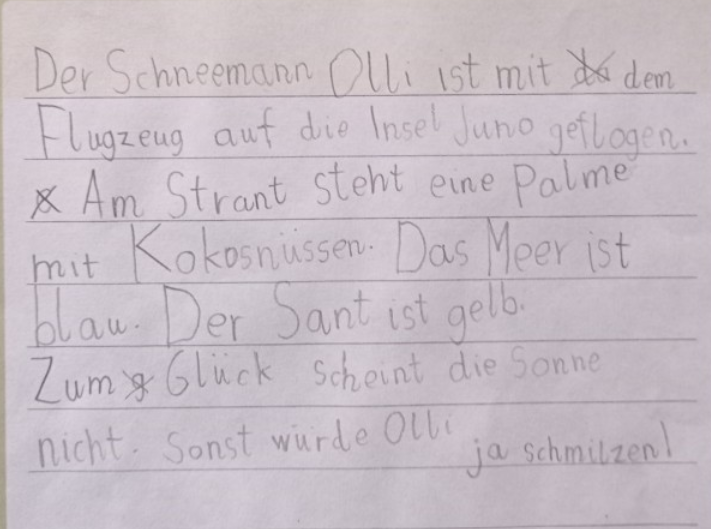 Der Schneemann Olli ist mit dem
Flugzeug auf die Insel Juno geflogen.
Am Strant steht eine Palme
mit Kokosnüssen. Das Meer ist
blau. Der Sant ist gelb.
Zum Glück scheint die Sonne
nicht. Sonst würde Olli ja schmilzen!